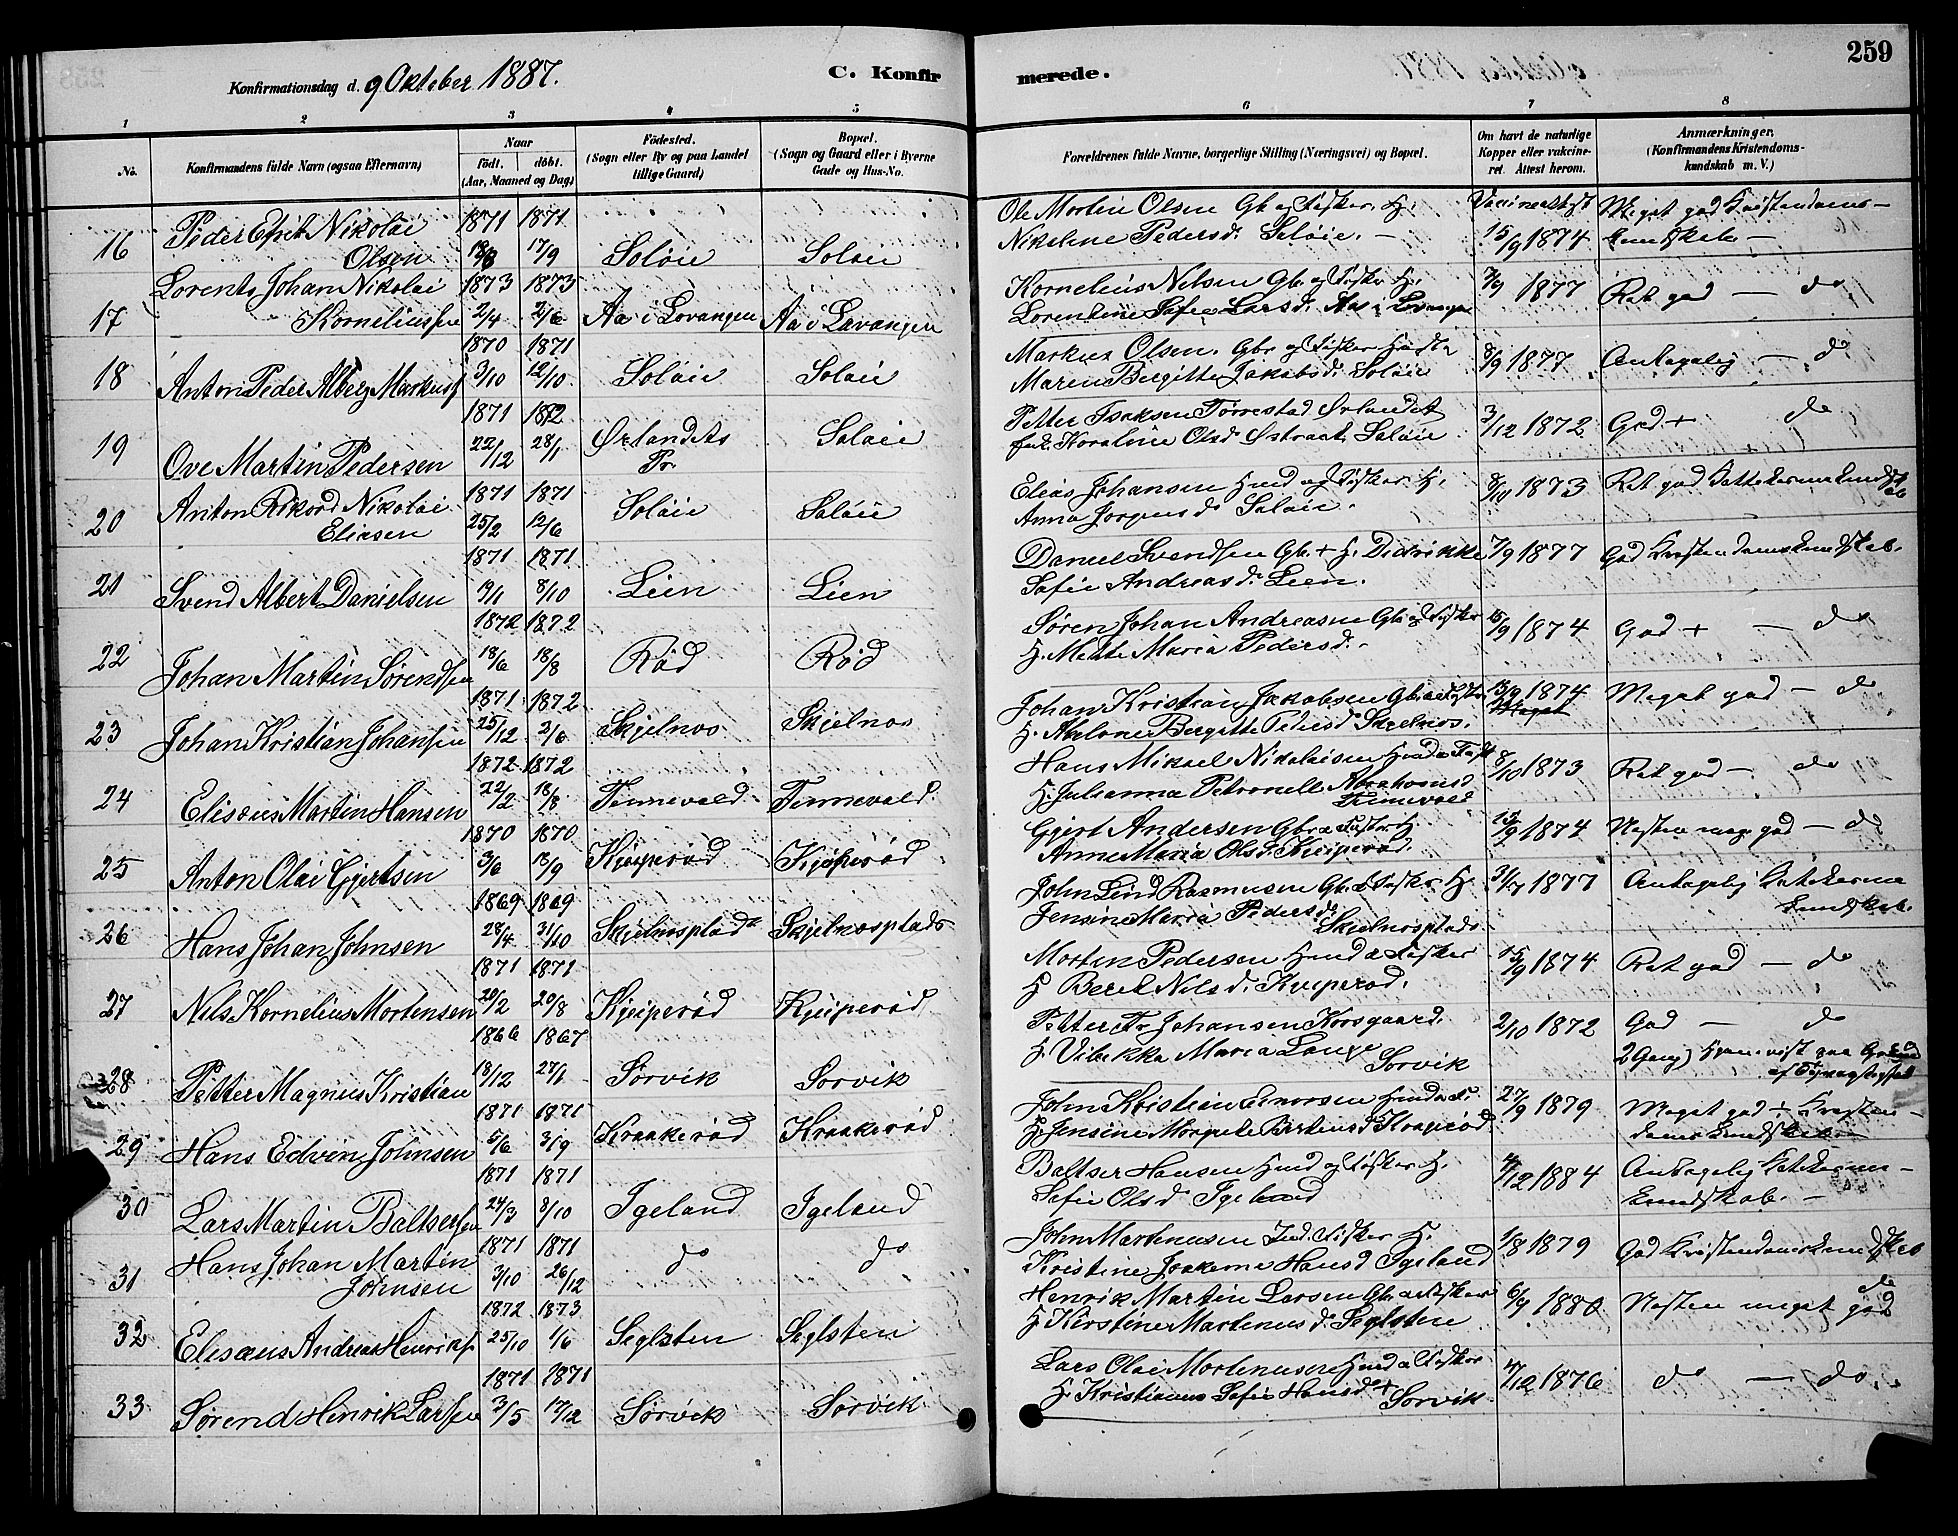 259
Konfirmationsdag d. 9 Oktober 1887.
C. Konfir
merede.
1 2 3 4 5 6 7 8
No.
Konfirmandens fulde Navn (ogsaa Efternavn)
Naar
født. døbt.
(Aar, Maaned og Dag)
Födested.
(Sogn eller By og paa Landet
tillige Gaard)
Bopæl.
(Sogn og Gaard eller i Byerne
Gade og Hus-No.
Forældrenes fulde Navne, borgerlige Stilling (Næringsvei) og Bopæl.
Om havt de naturlige
Kopper eller vakcine-
ret. Attest herom.
Anmærkninger.
(Konfirmandens Kristendoms-
kundskab m. V.)
Peder Nikolai 1871 1871 Ole Morten Olsen Gb og Fisker H. Meget god Kristendoms-
16 Olsen 17/9 Soløie Soløie Nikoline Pedersd. Soløie. 15/9 1874 kundskab
Lorents Johan Nikolai 1873 1873 Kornelius Nilsen Gb. og Fisker H. 1877 Ret god — do
17 Korneliussen 2/4 2/6 Aa i Lavangen Aa i Lavangen Lorentine Sofie Larsd. Aa i
1870 1871 Markus Olsen. Gbr og Fisker
18 Anton Peder 3/10 12/10 Soløie Soløie Maren Bergitte Jakobsd. Soløie 8/9 1877 Antagelig — do
1871 1872 Petter Isaksen Torrestad Ørlandet
19 Ove Martin Pedersen 22/12 28/1 Ørlandets Pr. Soløie Olsd Østraat, Soløie 3/12 1872 God + do
20 Anton Rikard Nikolai 1871 1871 Elias Johansen Husmd og Fisker H. 8/10 1873 Ret god
Eliasen 25/2 12/6 Soløie Soløie Anna Jorgensd Soløie.
1871 1871 Daniel Svendsen Gb. + H. Didrikke 7/9 1877 God Kristendomskundskab.
21 Svend Albert Danielsen 8/10 Lien Lien Sofie Andreasd. Lien.
1872 1872 Søren Johan Andreasen Gb og Fisker 15/9 1874 God + — do
22 Johan Martin Sørensen 18/6 18/8 Rød Rød H. Mette Maria Pedersd.
1871 1872 Johan Kristian Jakobsen Gb. & Fisker 15/9 1874 Meget god — do
23 Johan Kristian Johansen 25/12 2/6 Skjelnos Skjelnos H. Abelone Bergitte Pedersd Skjelnos.
1872 1872 Hans Mikael Nikolaisen 8/10 1873 Ret god — do
24 Elisæus Martin Hansen 22/2 18/8 Tennevold Tennevold H. Julianna Petronelle Abrahamsd
Tennevold
1870 1870 Gjert Andersen Gbr & Fisker H. 15/9 1874 Nesten meget god — do
25 Anton Olai Gjertsen 3/6 Kjeiperød Kjeiperød Anne Maria Olsd. Kjeiperød
1869 1869 John Lind Rasmusen Gb & Fisker H 31/7 1877 Antagelig Katekisme
26 Hans Johan Johnsen 28/4 31/10 Skjelnosplads Skjelnosplads Jensine Maria Pedersd. Skjelnosplads kundskab.
1871 1871 Morten Pedersen Husmd & Fisker 15/9 1874 Ret god — do
27 Nils Kornelius Mortensen 20/2 20/8 Kjeiperød Kjeiperød H Beret Nilsd. Kjeiperød.
1866 1867 Petter Fr Johansen Korsgaard. 2/10 1872 God — do
28 Petter Magnus Kristian 18/12 27/1 Sørvik Sorvik H. Vibekka Maria Lange Sorvik 2 Gang
1871 1871 John Kristian 27/9 1879 Meget god + Kristen-
29 Hans Edvin Johnsen 5/6 3/9 Kraakerød Kraakerød H. Jensine Margrete
1871 1871 Baltser Hansen Husmd og Fisker H. 4/12 1884 Antagelig Katekisme-
30 Lars Martin Baltsersen 24/3 8/10 Igeland Igeland Sofie Olsd Igeland kundskab. —
Hans Johan Martin 1871 1871 John Martinusen Ind. Fisker H. 1/8 1879 God Kristendomskundskab
31 Johnsen 3/10 26/12 do do Kristine Joakime Hansd Igeland
1872 1873 Henrik Martin Larsen Gb. & Fisker 6/9 1880 Nesten meget god do
32 Elisæus Andreas Henriks. 25/10 1/6 Seglsten Seglsten H Kirstine Martinusd Seglsten
1871 1871 Lars Olai Mortenusen Husmd & Fisker 4/12 1876 do — do
33 Sørend Henrik Larsen 3/5 17/12 Sørvik Sorvik H. Kristianna Sofie Hansd + Sorvik